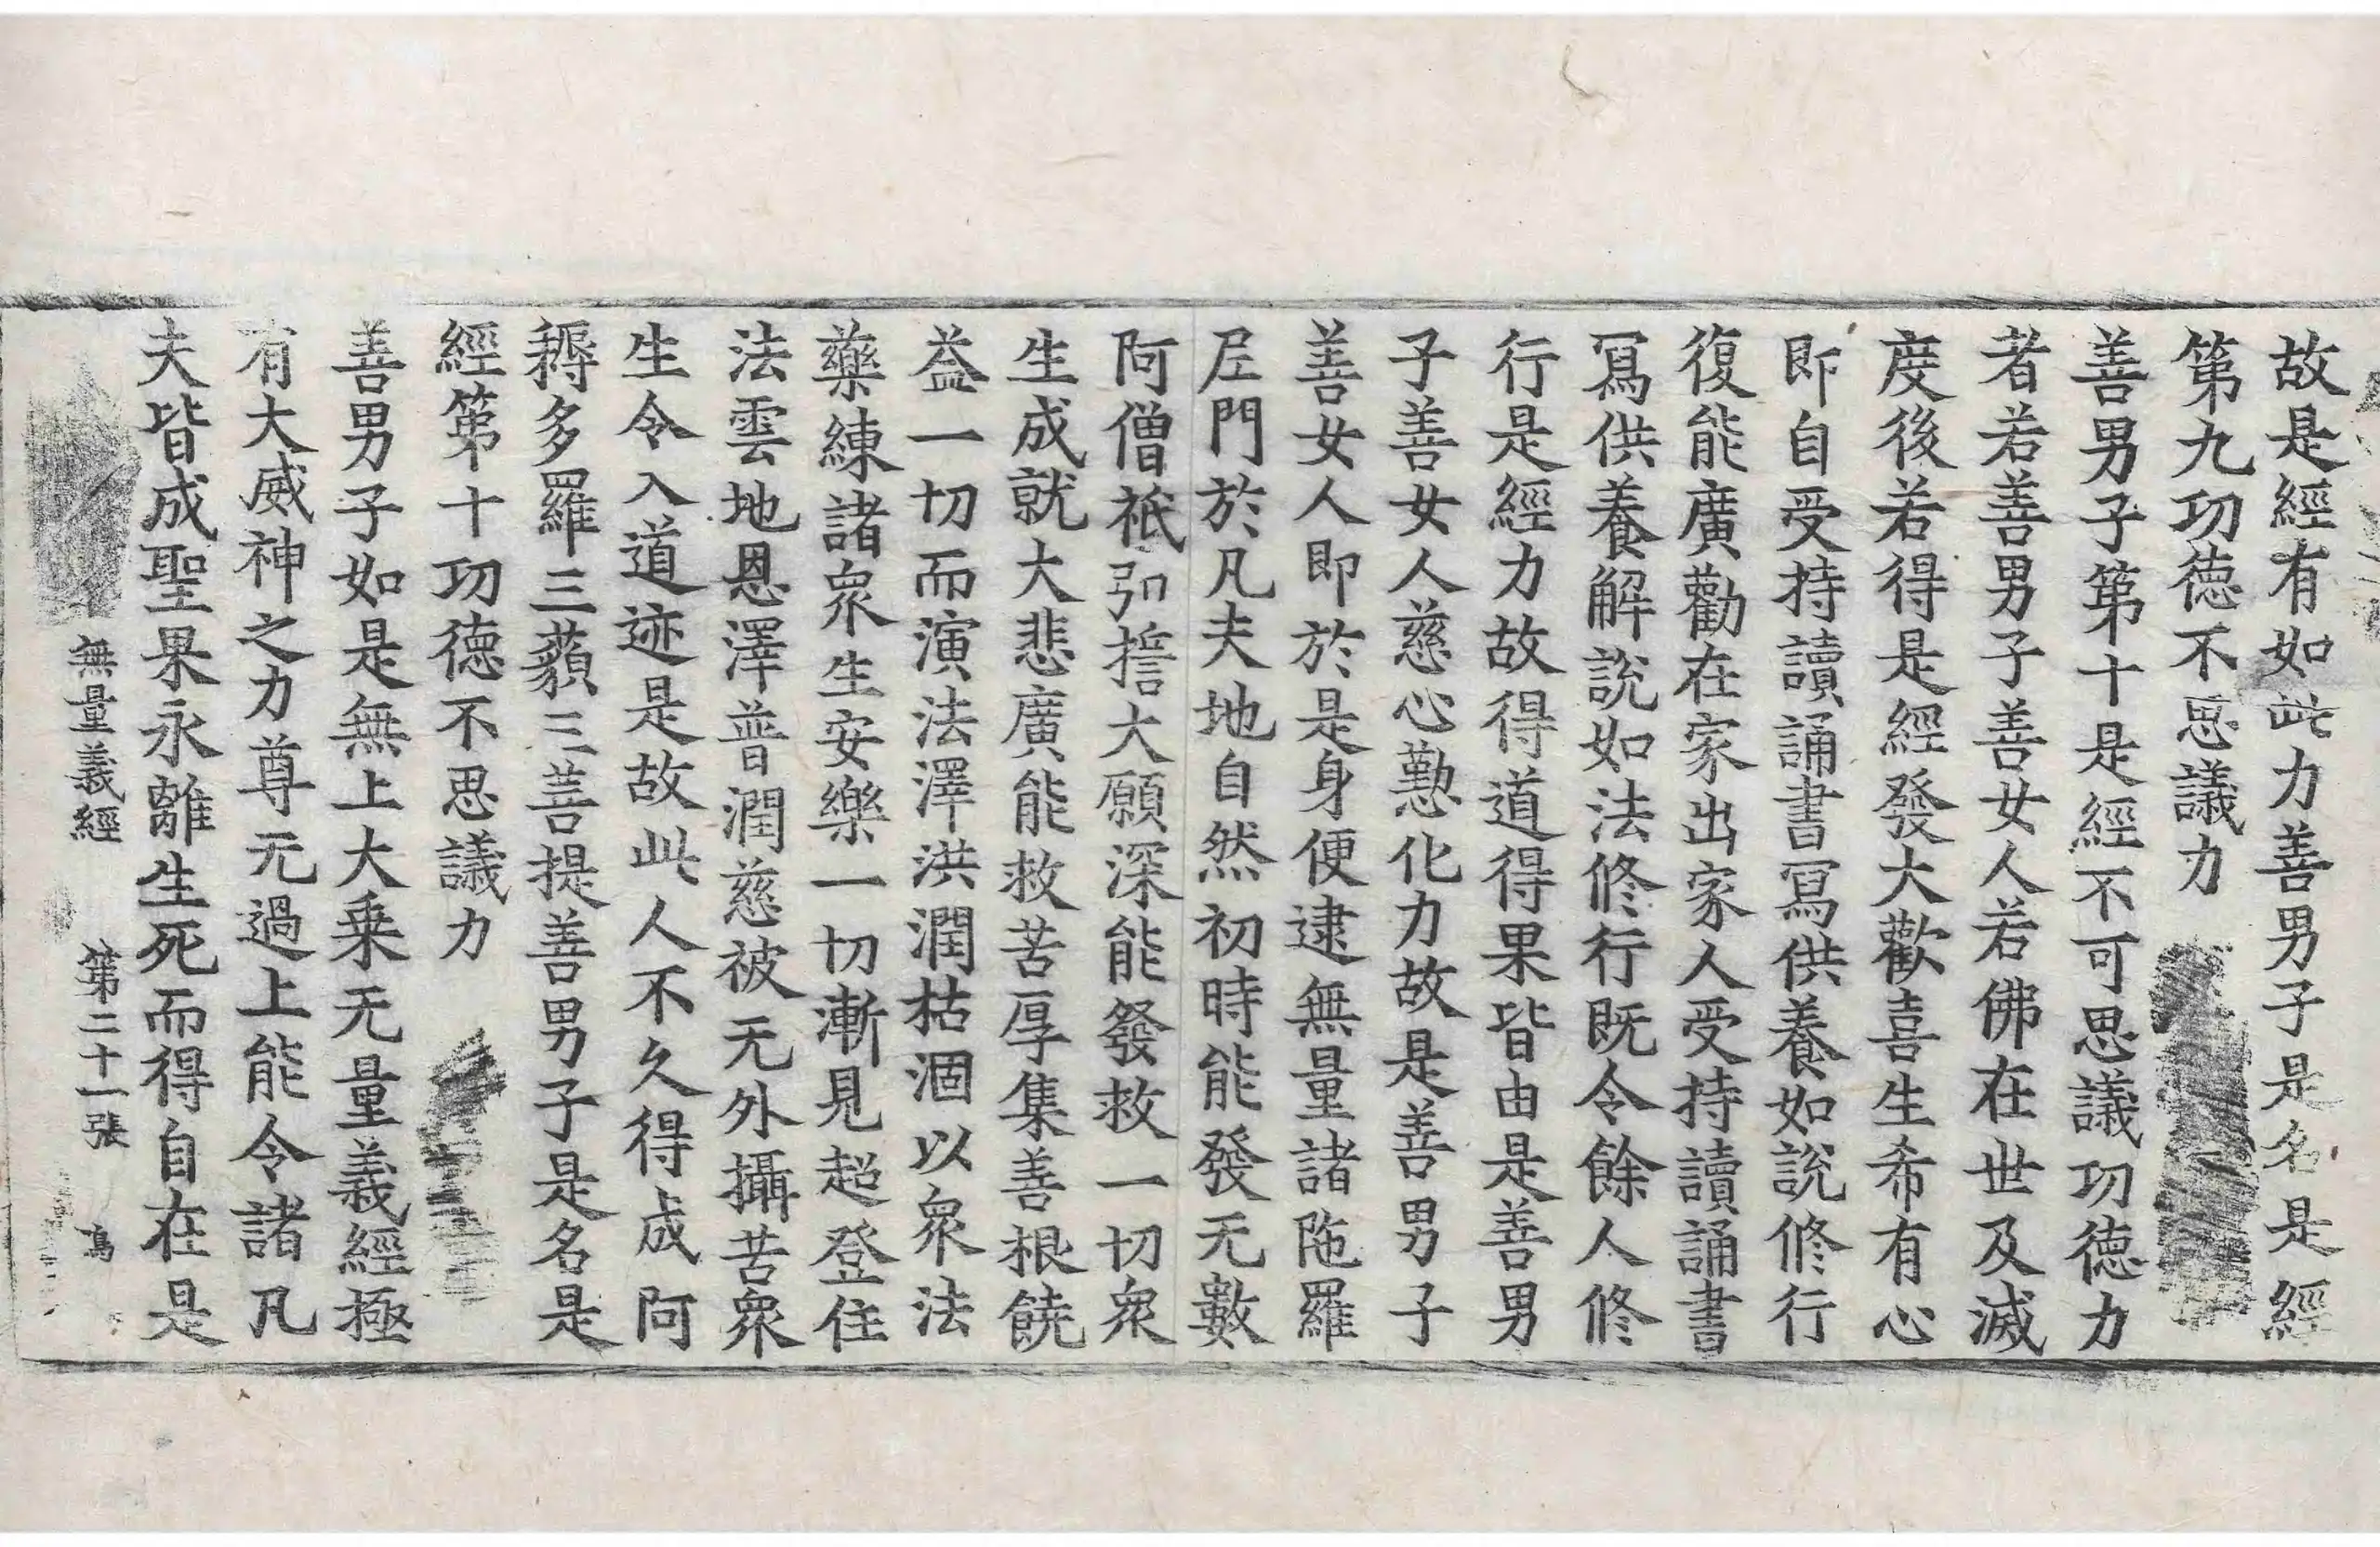 故是經有如此力善男子是名是經
第九功德不思議力
善男子第十是經不可思議功德力
者若善男子善女人若佛在世及滅
度後若得是經發大歡喜生希有心
即自受持讀誦書寫供養如說修行
復能廣勸在家出家人受持讀誦書
寫供養解說如法修行既令餘人修
行是經力故得道得果皆由是善男
子善女人慈心懃化力故是善男子
善女人即於是身便逮無量諸陁羅
尼門於凡夫地自然初時能發无數
阿僧祇弘誓大願深能發救一切衆
生成就大悲廣能救苦厚集善根饒
益一切而演法澤洪潤枯涸以衆法
藥練諸衆生安樂一切漸見超登住
法雲地恩澤普潤慈被无外攝苦衆
生令入道迹是故此人不久得成阿
耨多羅三藐三菩提善男子是名是
經第十功德不思議力
善男子如是無上大乘无量義經極
有大威神之力尊无過上能令諸凡
夫皆成聖果永離生死而得自在是
無量義經 第二十一張